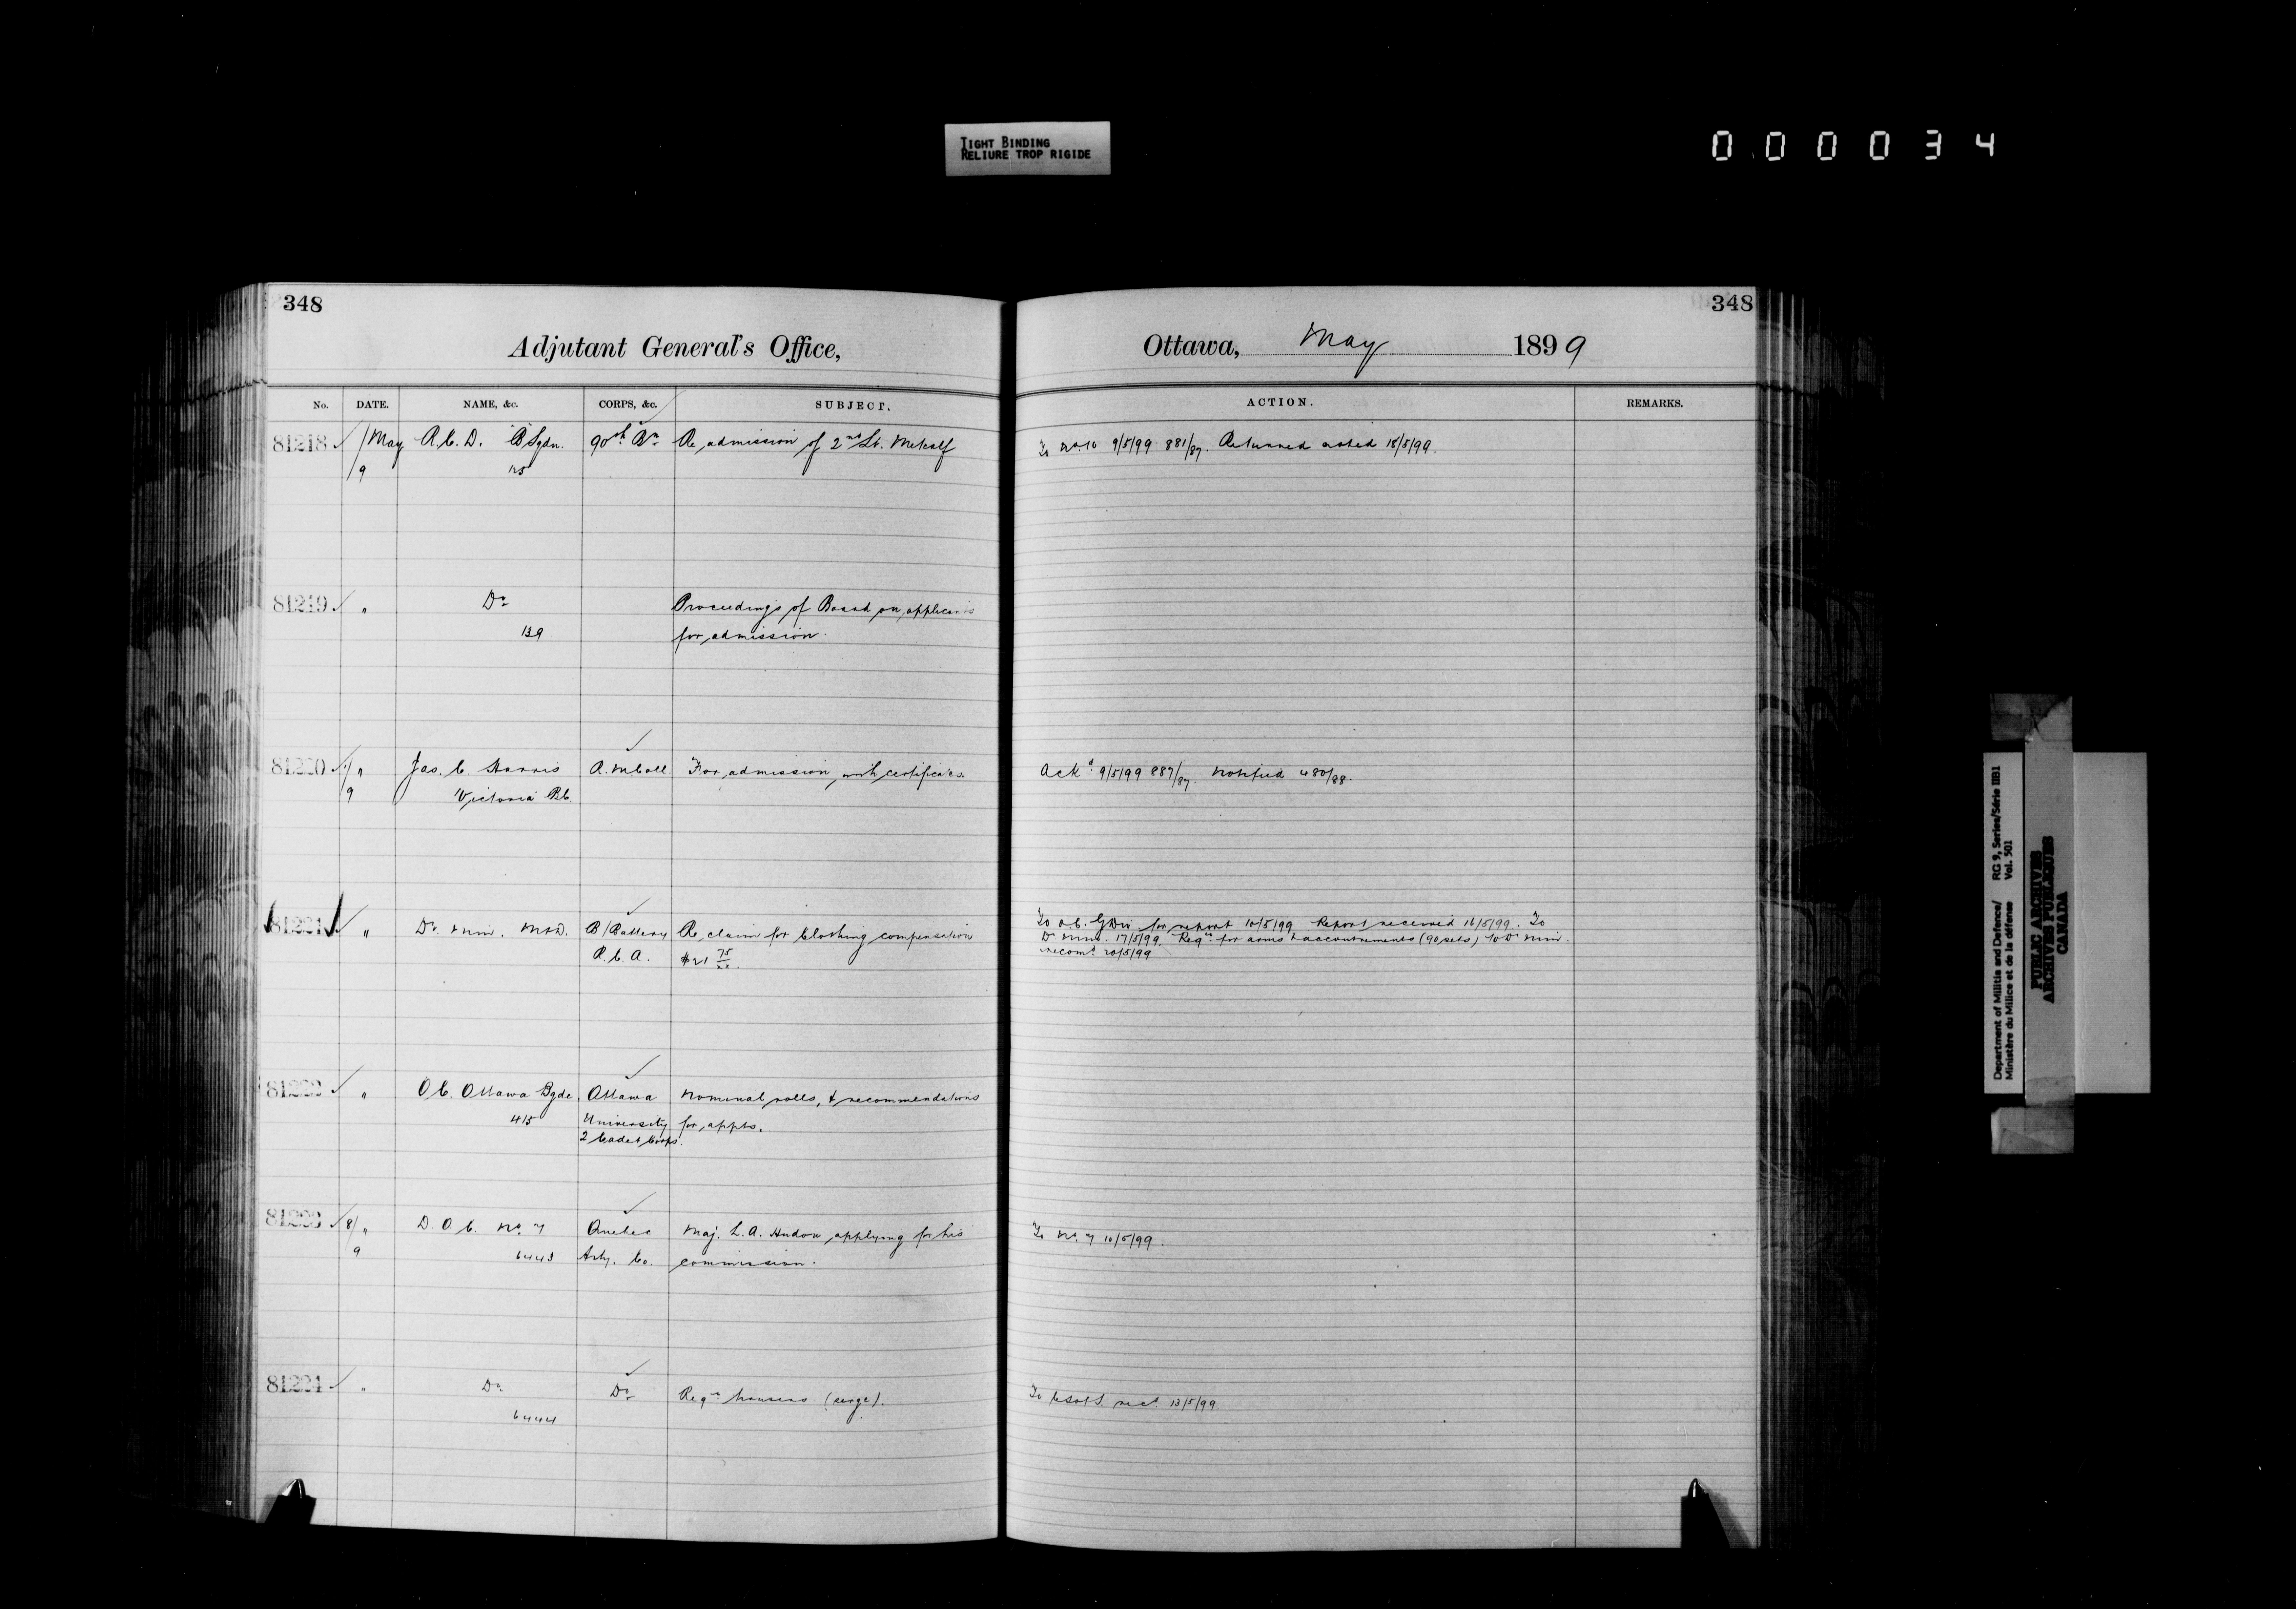 TIGHT BINDING
RELIURE TROP RIGIDE
000034
348
348
Adjutant General's Office,
Ottawa, May 1899
No. DATE. NAME, &c. CORPS, &c. SUBJECT. ACTION. REMARKS.
81218 May R.C.D. "B" Sqdn. 90th Bn Re admission of 2nd Lt. Metcalf To No. 10 9/5/99 881/87. Returned noted 18/5/99.
9 125
81219 " Do Proceedings of Board on
139 for admission.
81220 " Jas. C Harris R. M Coll For admission with certificates. Ackd 9/5/99 887/87. Notified 480/88.
9 Victoria BC
81221 " Dy. Min. M&D. B/Battery Re claim for Clothing compensation To O.C. for report 10/5/99 Report received 16/5/99. To
R.C.A. $21 75 Dy Min. 17/5/99. Reqn for arms & accoutrements (90 sets) To Dy Min.
recomd 20/5/99
81222 " O.C. Ottawa Bgde Ottawa Nominal rolls, & recommendations
415 University for appts.
2 Cadet Corps.
81223 8/ " D.O.C. No. 7 Quebec Maj. L.A. Hudon applying for his To No. 7 10/5/99.
9 6443 Arty. Co. commission.
81224 " Do Do Reqn trousers (serge). To 13/5/99
6444
Department of Militia and Defence/ RG 9, Series/Série IIB1
Ministère du Milice et de la défense Vol. 501
PUBLIC ARCHIVES
ARCHIVES PUBLIQUES
CANADA